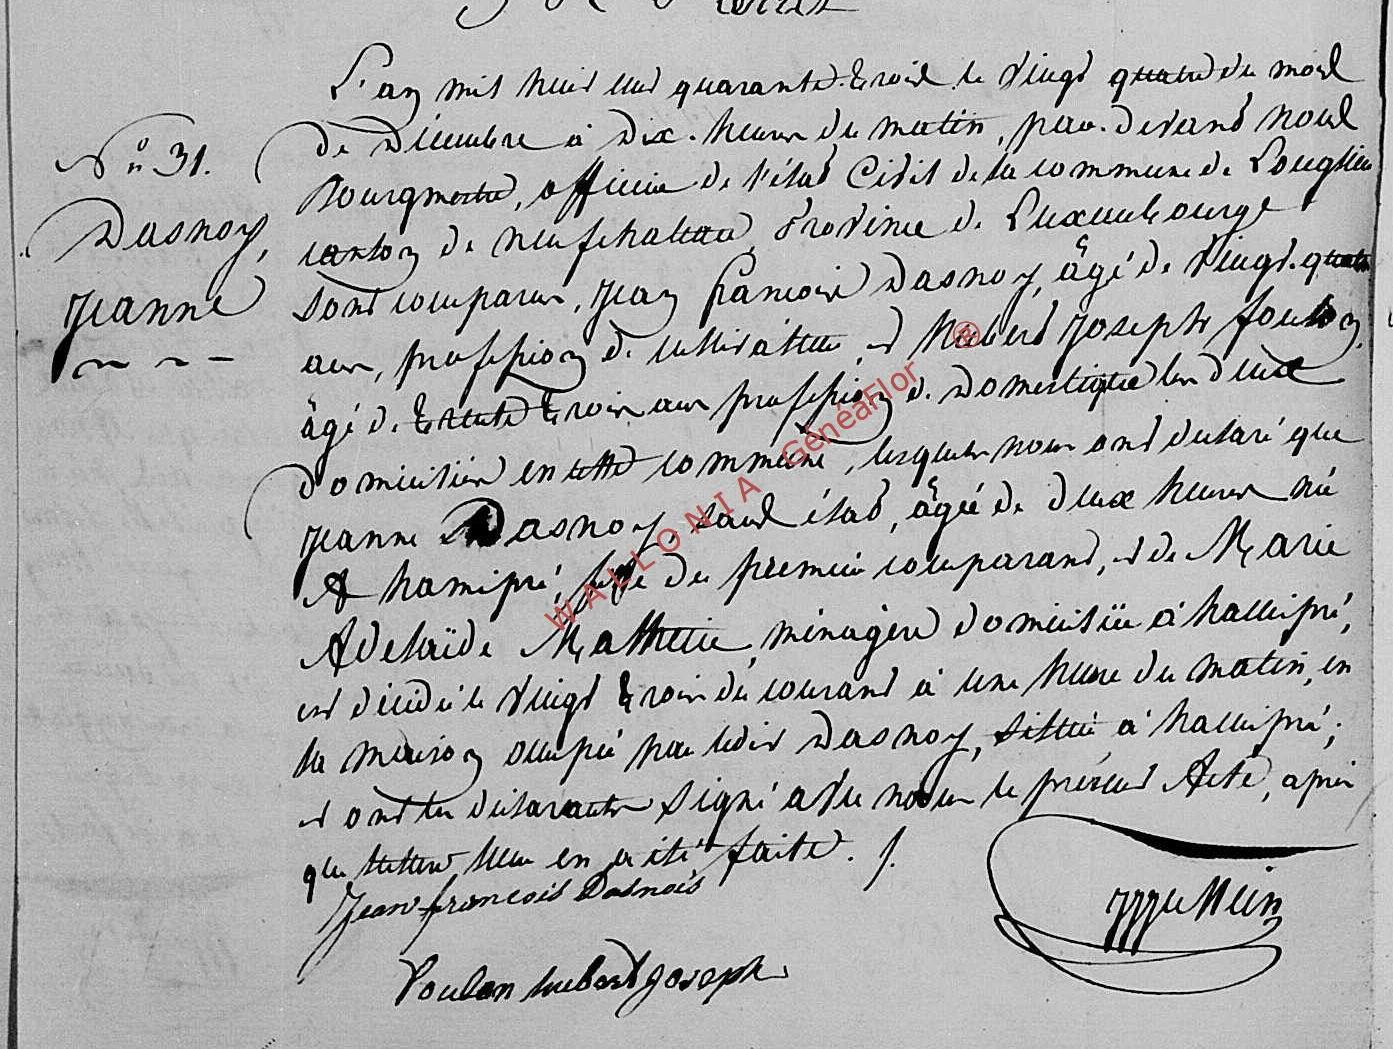 N° 31.
Dasnoy,
Jeanne
L'an mil huit cent quarante-trois le vingt quatre du mois
de Décembre à dix heures du matin, par-devant nous
Bourgmestre, officier de l'état Civil de la commune de Longlier
canton de neufchateau, Province de Luxembourg
sont comparus, Jean françois Dasnoy, âgé de vingt-quatre
ans, profession de cultivateur, et Hubert Joseph foulon,
âgé de trente trois ans profession de Domestique les deux
domiciliés en cette commune, lesquels nous ont déclaré que
Jeanne Dasnoy, sans état, âgée de deux heures née
A hamipré, fille du premier comparant, et de Marie
Adelaïde Mathieu, ménagère domiciliée à hamipré,
est décédée le vingt trois du courant à une heure du matin, en
la maison occupée par ledit Dasnoy, située à hamipré;
et ont les déclarants signé avec nous le présent Acte, après
que lecture leur en a été faite. /.
Jean françois Dasnois
foulon hubert joseph
WALLONIA GénéaFlor ®